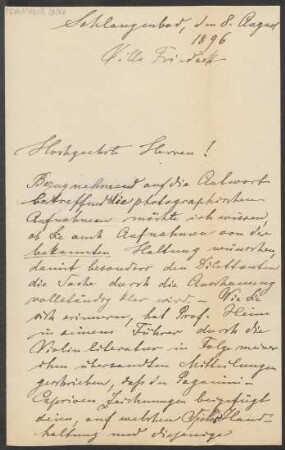 Schlangenbad, den 8. August
1896
Villa Friedeck
Hochgeehrte Herren!
Bezugnehmend auf die Antwort
betreffend die photographischen
Aufnahmen möchte ich wissen,
ob Sie auch Aufnahmen von der
bekannten Haltung wünschen,
damit besonders den Dilettanten
die Sache durch die Anschauung
vollständig klar wird. — Wie Sie
sich erinnern, hat Prof. Heim
in seinem Führer durch die
Violinliteratur in Folge meiner
ihm übersandten Mittheilungen
geschrieben, daß den Paganini-
Capricen Zeichnungen beigefügt
seien, auf welchen Hand-
haltung und diejenige